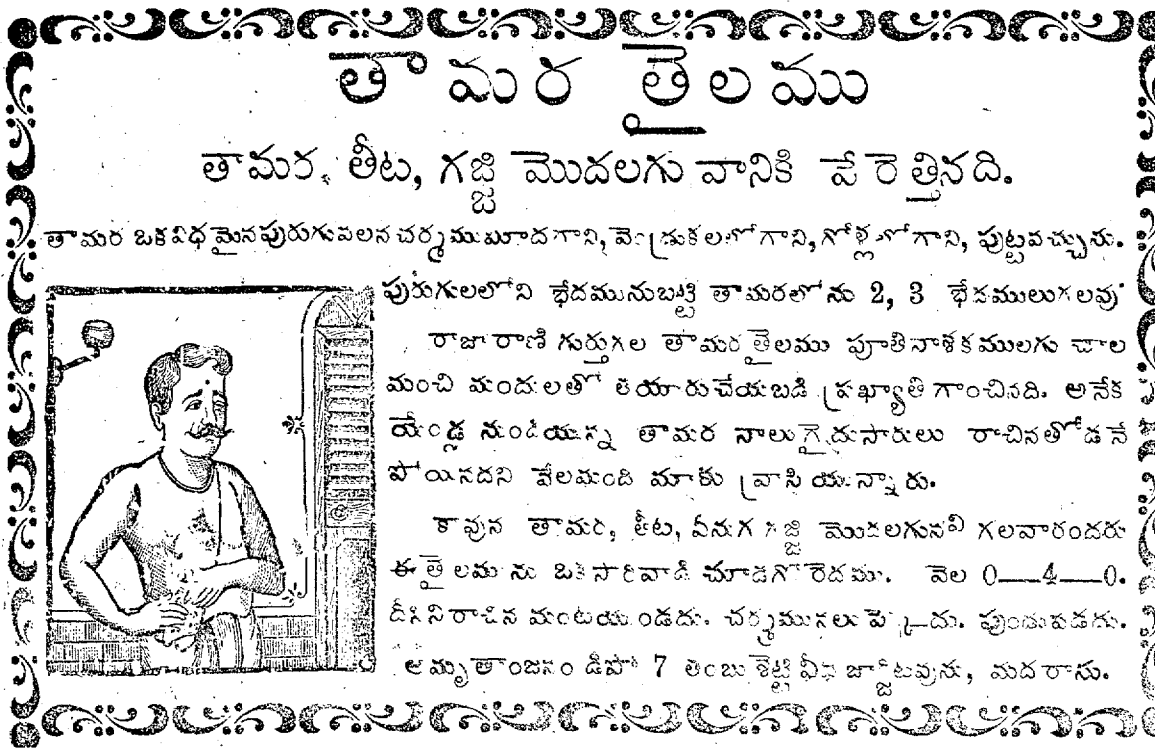 తామర తైలము
తామర, తీట, గజ్జి మొదలగు వానికి పేరెత్తినది.
తామర ఒకవిధమైనపురుగువలన చర్మముమీదగాని, వెండ్రుకలలోగాని, గోళ్లలోగాని, పుట్టవచ్చును.
పురుగులలోని భేదమునుబట్టి తామరలోను 2, 3 భేదములుగలవు
రాజా రాణి గుర్తుగల తామర తైలము పూతినాశకములగు చాల
మంచి మందులతో తయారుచేయబడి ప్రఖ్యాతి గాంచినది. అనేక
యేండ్ల నుండియున్న తామర నాలుగైదుసారులు రాచినతోడనే
పోయినదని వేలమంది మాకు వ్రాసి యున్నారు.
కావున తామర, తీట, ఏనుగ గజ్జి మొదలగునవి గలవారందరు
ఈ తైలమును ఒకసారివాడి చూడగోరెదము. వెల 0—4—0.
దీనిని రాచిన మంటయుండదు. చర్మమునలు పెక్కదు. పుండుపడదు.
అమృతాంజనం డిపో 7 తంబుశెట్టి వీధి జ్కార్జిటవును, మదరాసు.